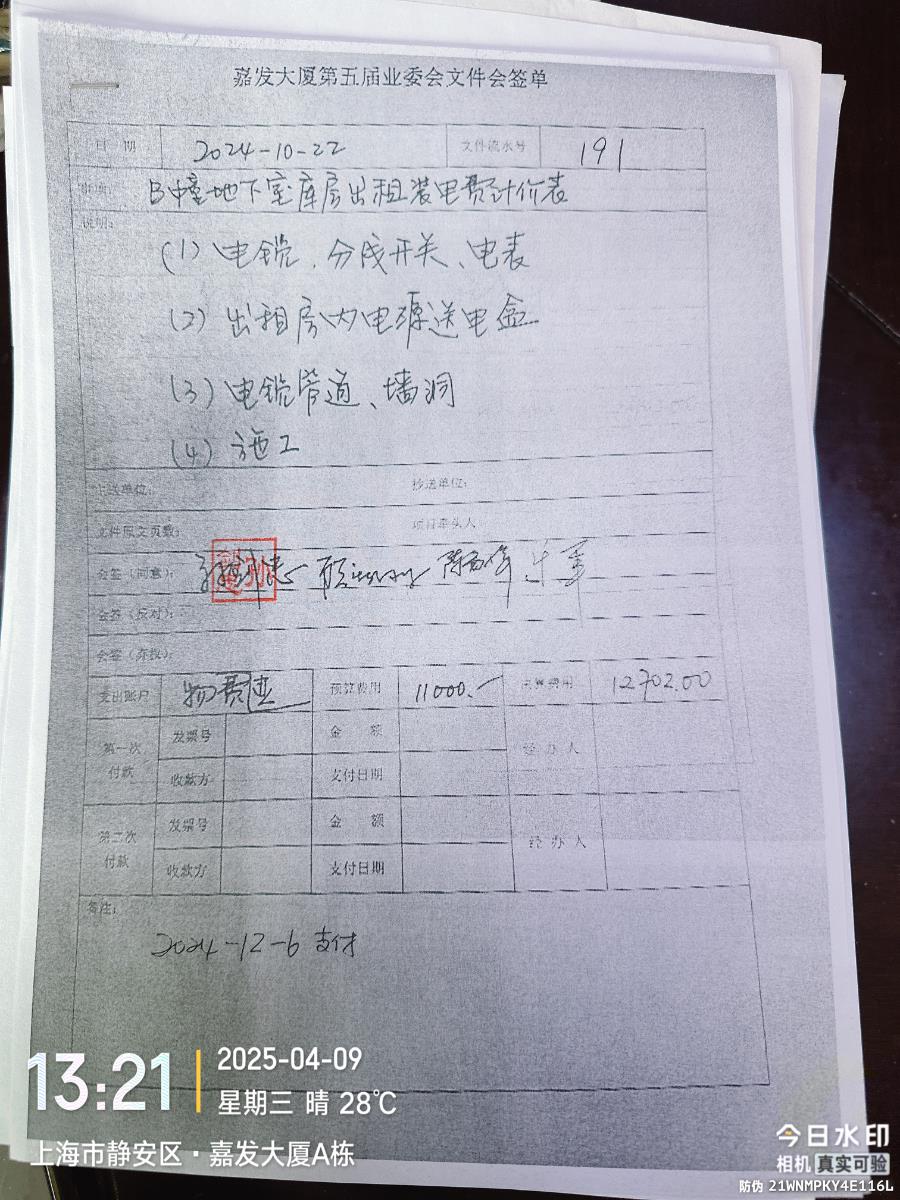 嘉发大厦第五届业委会文件会签单
日 期 2024-10-22 文件流水号 191
事项: B幢地下室库房出租装电费计价表
说明:
(1) 电缆、分线开关、电表
(2) 出租房内电源送电盒
(3) 电缆管道、墙洞
(4) 施工
主送单位: 抄送单位:
文件原文页数: 项目牵头人
会签(同意):
会签(反对):
会签(弃权):
支出账户 预算费用 11000.- 决算费用 12702.00
第一次付款 发票号 金 额 经 办 人
收款方 支付日期
第二次付款 发票号 金 额 经 办 人
收款方 支付日期
备注:
2024-12-6 支付
13:21
2025-04-09
星期三 晴 28℃
上海市静安区·嘉发大厦A栋
今日水印
相机 真实可验
防伪 21WNMPKY4E116L